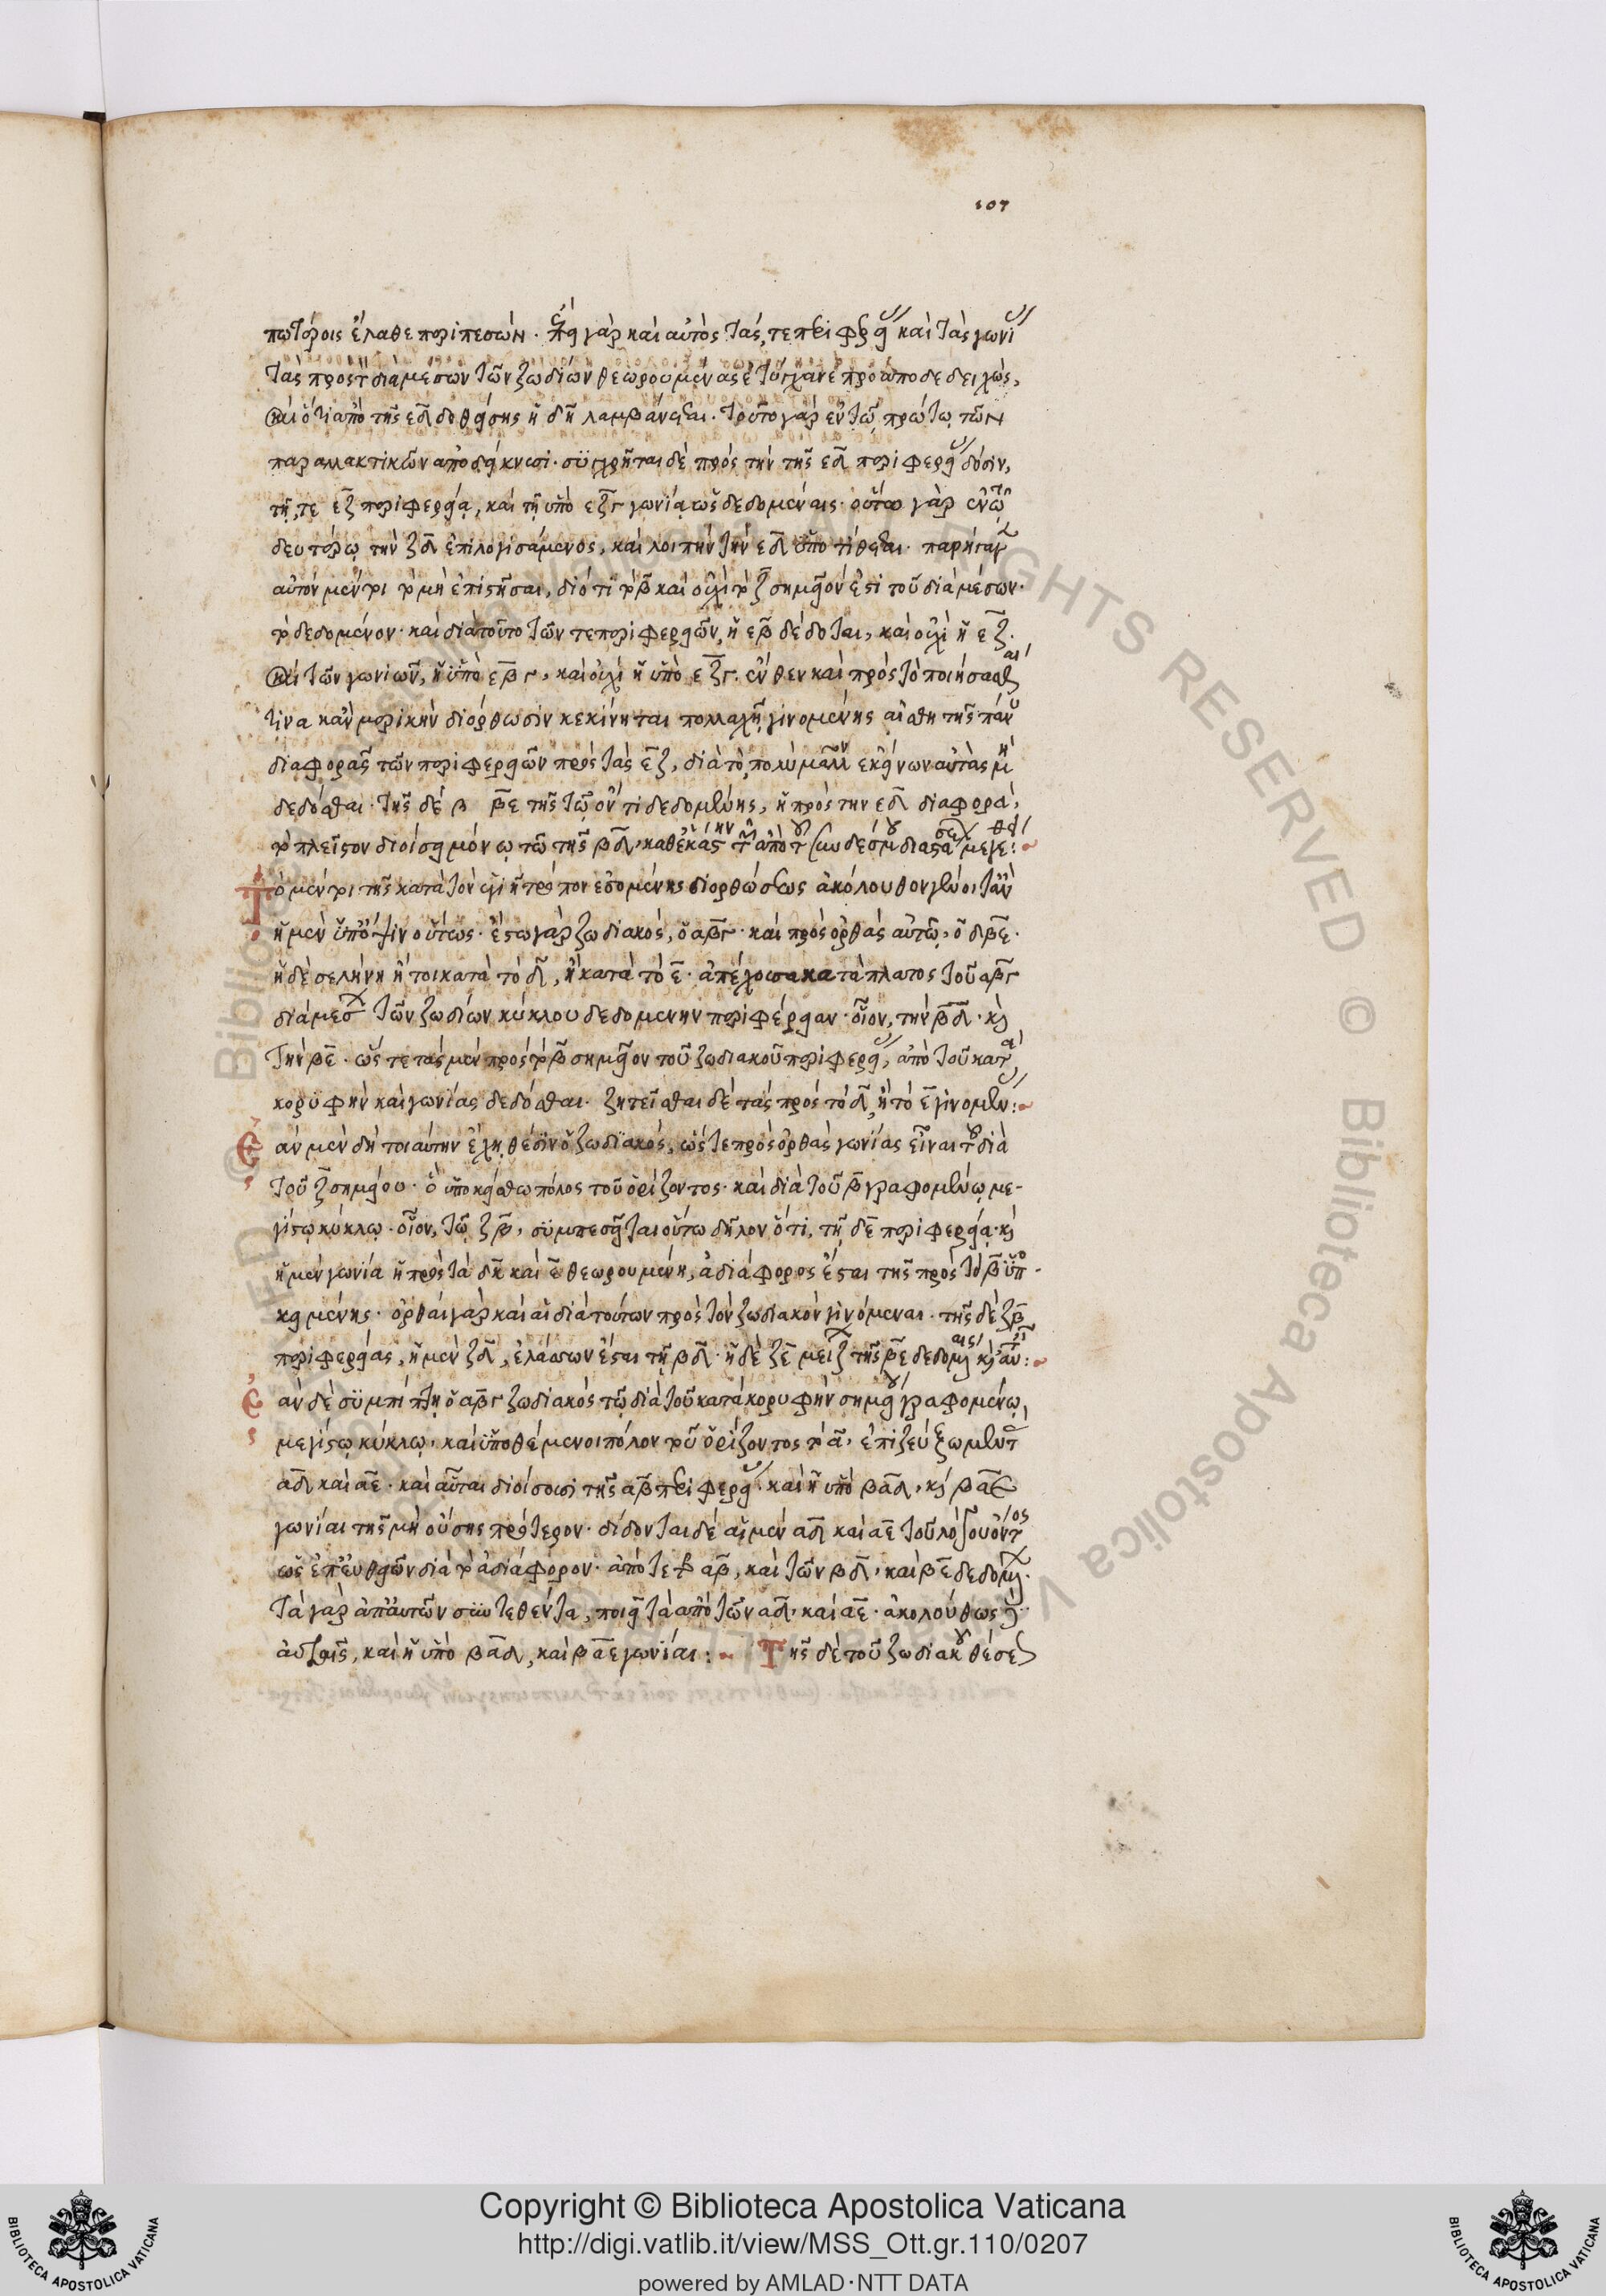 107
πωτέροις ἔλαθε περιπεσών. ἐπεὶ γὰρ καὶ αὐτὸς τάς τε περιφερείας καὶ τὰς γωνίας
τὰς πρὸς τῷ διὰ μέσων τῶν ζωδίων θεωρουμένας ἐτύγχανε προαποδεδειχώς,
καὶ ὅτι ἀπὸ τῆς εδ δοθείσης ἡ δη λαμβάνεται. τοῦτο γὰρ ἐν τῷ πρώτῳ τῶν
παραλλακτικῶν ἀποδείκνυσι. συγχρῆται δὲ πρὸς τὴν τῆς εδ περιφερείας δόσιν,
τῇ τε εζ περιφερείᾳ, καὶ τῇ ὑπὸ εζγ γωνίᾳ ὡς δεδομέναις. οὕτω γὰρ ἐν τῷ
δευτέρῳ τὴν ζδ ἐπιλογισάμενος, καὶ λοιπὴν τὴν εδ ὑποτίθεται. παρήγαγε
αὐτὸν μέντοι τὸ μὴ ἐπιστῆσαι, διότι τὸ β καὶ οὐχὶ τὸ ζ σημεῖόν ἐστι τοῦ διὰ μέσων.
τὸ δεδομένον. καὶ διὰ τοῦτο τῶν τε περιφερειῶν, ἡ εβ δέδοται, καὶ οὐχὶ ἡ εζ.
καὶ τῶν γωνιῶν, ἡ ὑπὸ εβγ, καὶ οὐχὶ ἡ ὑπὸ εζγ. ἔνθεν καὶ πρὸς τὸ ποιήσασθαι
τινα κἂν μερικὴν διόρθωσιν κεκίνηται πολλαχῇ γινομένης αἰσθητῆς πάνυ
διαφορᾶς τῶν περιφερειῶν πρὸς τὰς εζ, διὰ τὸ πολὺ μᾶλλον ἐκείνων αὐτὰς μὴ
δεδόσθαι. τῆς δὲ β βε τῆς τῷ ὄντι δεδομένης, ἡ πρὸς τὴν εδ διαφορά,
τὸ πλεῖστον διοίσει μόνῳ τῷ τῆς βδ, καθ' ἑκάστην τῶν ἀπὸ τοῦ συνδέσμου διαστάσεων μεγέθει:
Τὸ μέντοι τῆς κατὰ τὸν ὑγιῆ τρόπον ἐσομένης διορθώσεως ἀκόλουθον γένοιτ' ἂν
ἡμῖν ὑπ' ὄψιν οὕτως. ἔστω γὰρ ζωδιακὸς, ὁ αβγ. καὶ πρὸς ὀρθὰς αὐτῷ, ὁ δβε.
ἡ δὲ σελήνη ἤτοι κατὰ τὸ δ, ἢ κατὰ τὸ ε. ἀπέχουσα κατὰ πλάτος τοῦ αβγ
διὰ μέσων τῶν ζωδίων κύκλου δεδομένην περιφέρειαν. οἷον, τὴν βδ. καὶ
τὴν βε. ὥστε τὰς μὲν πρὸς τὸ β σημεῖον τοῦ ζωδιακοῦ περιφερείας, ἀπὸ τοῦ κατὰ
κορυφὴν καὶ γωνίας δεδόσθαι. ζητεῖσθαι δὲ τὰς πρὸς τὸ δ, ἢ τὸ ε γινομένας:
Ἐὰν μὲν δὴ τοιαύτην ἔχῃ θέσιν ὁ ζωδιακὸς, ὥστε πρὸς ὀρθὰς γωνίας εἶναι τῷ διὰ
τοῦ ζ σημείου. ὃ ὑποκείσθω πόλος τοῦ ὁρίζοντος. καὶ διὰ τοῦ β γραφομένῳ με-
γίστῳ κύκλῳ. οἷον, τῷ ζβ, συμπεσεῖται οὕτω δῆλον ὅτι, τῇ δε περιφερείᾳ. καὶ
ἡ μὲν γωνία ἡ πρὸς τὰ δ καὶ ε θεωρουμένη, ἀδιάφορος ἔσται τῆς πρὸς τὸ β ὑπο-
κειμένης. ὀρθαὶ γὰρ καὶ αἱ διὰ τούτων πρὸς τὸν ζωδιακὸν γινόμεναι. τῆς δὲ ζβ
περιφερείας, ἡ μὲν ζδ, ἐλάσσων ἔσται τῇ βδ. ἡ δὲ ζε μείζων τῆς βε δεδομέναις καὶ αὐταῖς:
Ἐὰν δὲ συμπίπτῃ ὁ αβγ ζωδιακὸς τῷ διὰ τοῦ κατὰ κορυφὴν σημείου γραφομένῳ
μεγίστῳ κύκλῳ, καὶ ὑποθέμενοι πόλον τοῦ ὁρίζοντος τὸ α, ἐπιζεύξωμεν τὰς
αδ καὶ αε. καὶ αὗται διοίσουσι τῆς αβ περιφερείας. καὶ ἡ ὑπὸ βαδ, καὶ βαε
γωνίαι τῆς μὴ οὔσης πρότερον. δίδονται δὲ αἱ μὲν αδ καὶ αε τοῦ λόγου ὄντος
ὡς ἐπ' εὐθειῶν διὰ τὸ ἀδιάφορον. ἀπό τε τῆς αβ, καὶ τῶν βδ, καὶ βε δεδομένων.
τὰ γὰρ ἀπ' αὐτῶν συντεθέντα, ποιεῖ τὰ ἀπὸ τῶν αδ, καὶ αε. ἀκολούθως δὲ
αὐταῖς, καὶ ἡ ὑπὸ βαδ, καὶ βαε γωνίαι: Τῆς δὲ τοῦ ζωδιακοῦ θέσεως
Copyright © Biblioteca Apostolica Vaticana
http://digi.vatlib.it/view/MSS_Ott.gr.110/0207
powered by AMLAD·NTT DATA
BIBLIOTECA APOSTOLICA VATICANA
BIBLIOTECA APOSTOLICA VATICANA